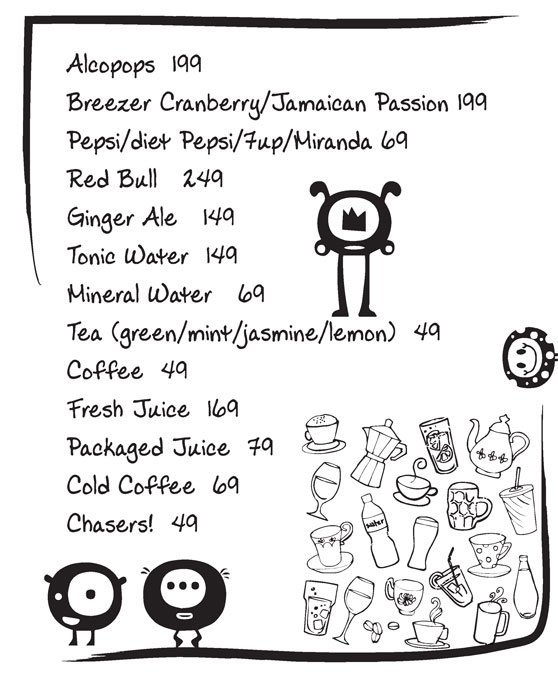 Alcopops 199
Breezer Cranberry/Jamaican Passion 199
Pepsi/diet Pepsi/7up/Miranda 69
Red Bull 249
Ginger Ale 149
Tonic Water 149
Mineral Water 69
Tea (green/mint/jasmine/lemon) 49
Coffee 49
Fresh Juice 169
Packaged Juice 79
Cold Coffee 69
Chasers! 49
water